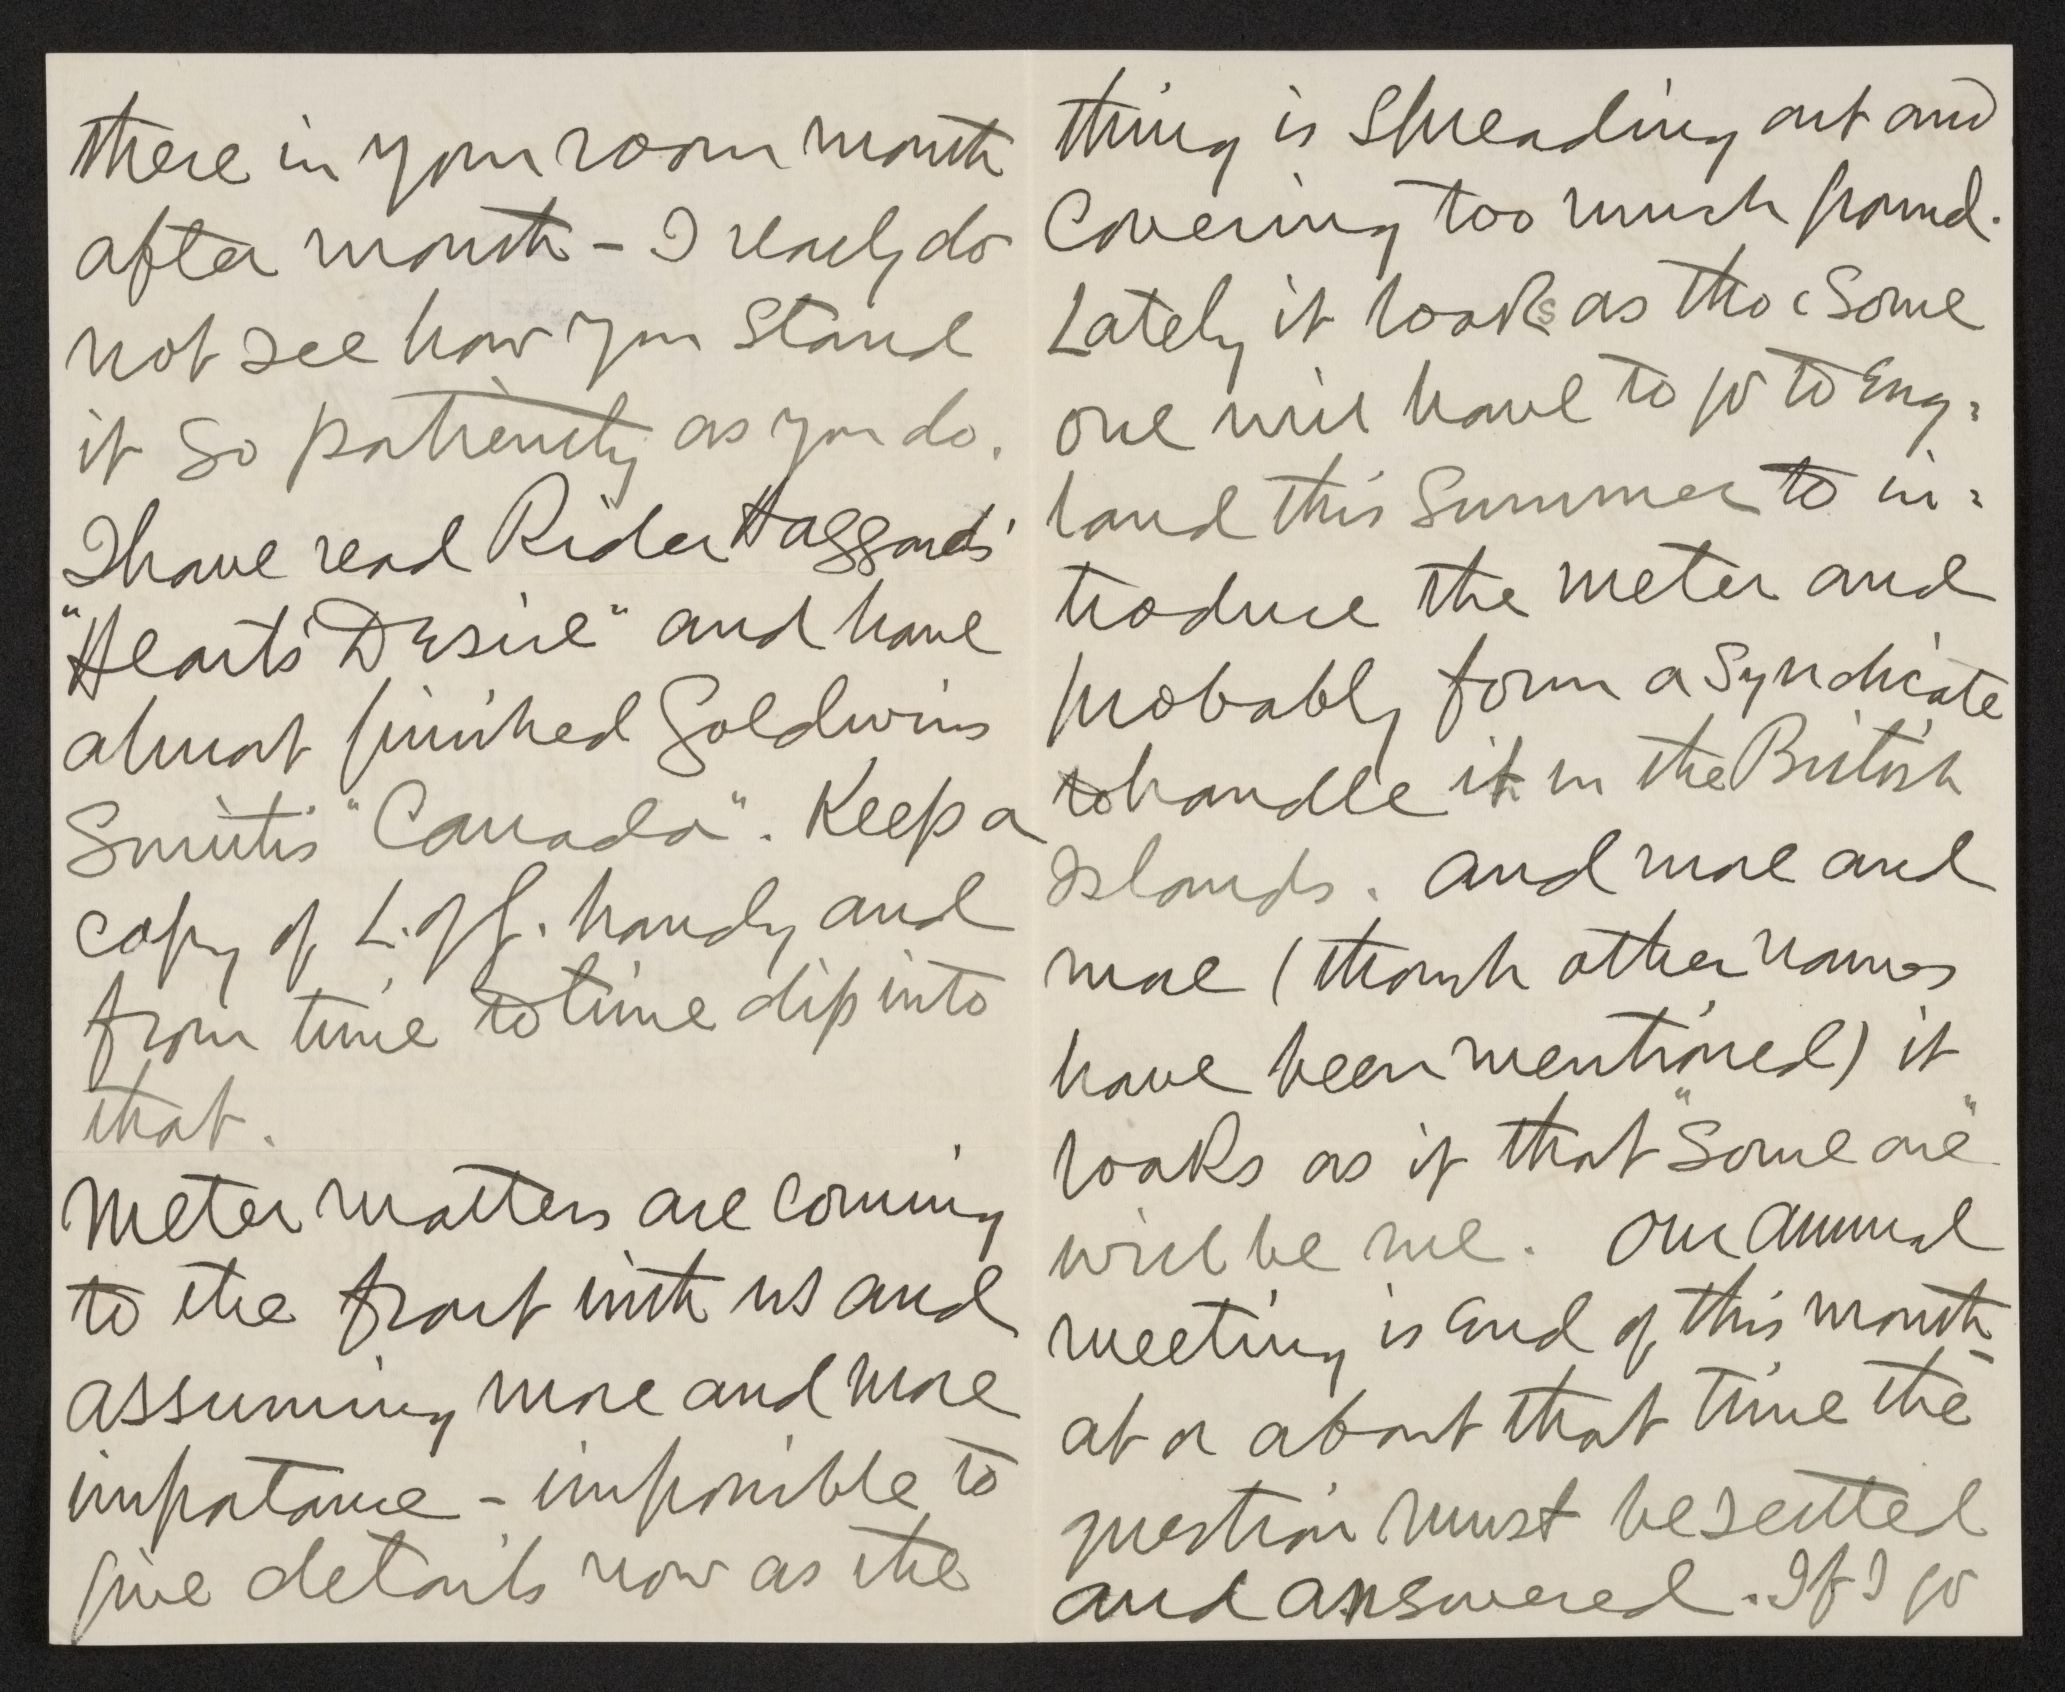 there in your room month
after month – I really do
not see how you stand
it so patiently as you do.
I have read Rider Haggards'
"Hearts Desire" and have
almost finished Goldwins
Smith's "Canada". Keep a
copy of L. of G. handy and
from time to time dip into
that.
Meter matters are coming
to the front with us and
assuming more and more
importance – impossible to
give details now as the
thing is spreading out and
covering too much ground.
Lately it looks as tho some
one will have to go to Eng=
land this Summer to in=
troduce the meter and
probably form a Syndicate
to handle it in the British
Islands. And more and
more (though other names
have been mentioned) it
looks as if that "Some one"
will be me. Our annual
meeting is end of this month –
at or about that time the
question must be settled
and answered. If I go